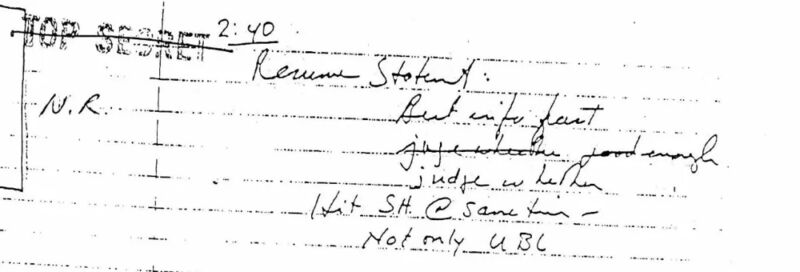 TOP SECRET 2:40
Resume Statemt:
N.R.
Best info fast
judge whether good enough
judge whether
Hit SH @ same time -
Not only UBL